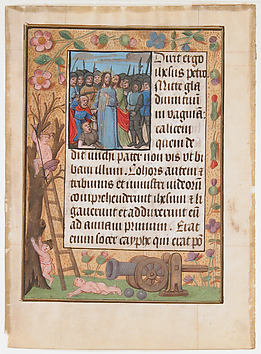 Dixit ergo
ihesus petro
Mitte gla
dium tuū
in vaginā
calicem
quem de
dit michi pater non vis vt bi
bam illum. Cohors autem et
tribunus et ministri iudeorū
comprehenderunt ihesum et li
gauerunt et adduxerunt eū
ad annam primum. Erat
enim socer cayphe qui erat pō